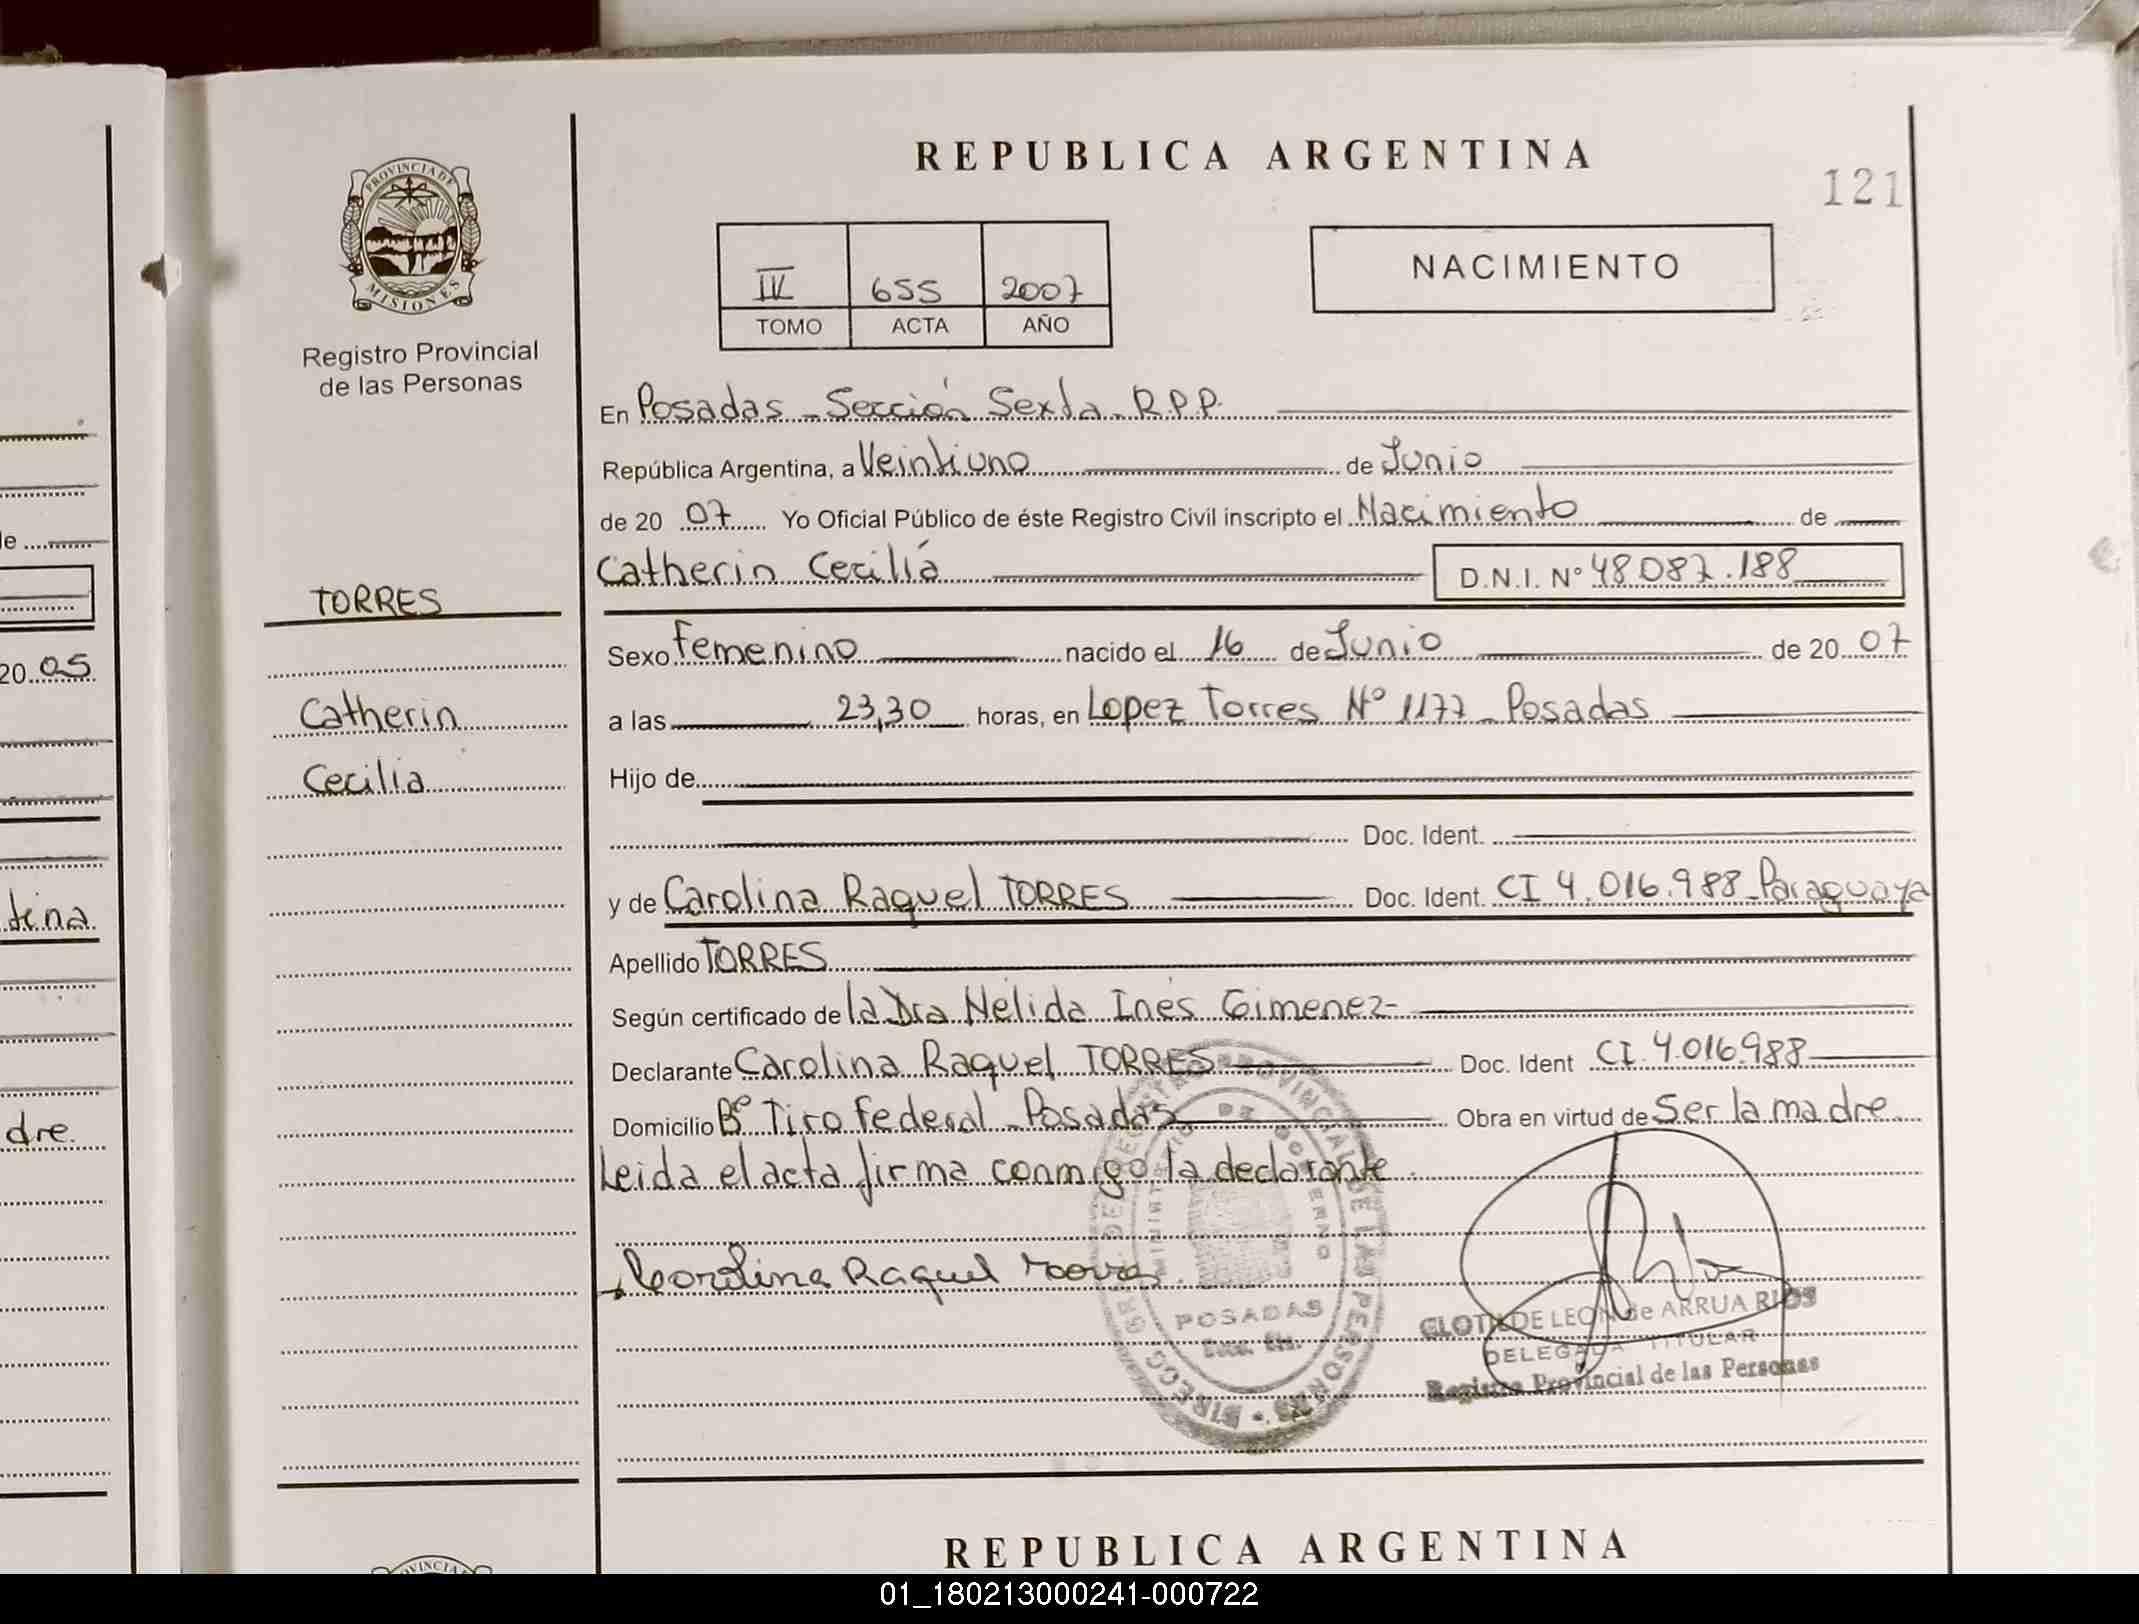 REPUBLICA ARGENTINA
121
PROVINCIA DE MISIONES
Registro Provincial
de las Personas
IV 655 2007
TOMO ACTA AÑO
NACIMIENTO
En Posadas - Sección Sexta - R.P.P.
República Argentina, a Veintiuno de Junio
de 20 07 Yo Oficial Público de éste Registro Civil inscripto el Nacimiento de
Catherin Cecilia D.N.I. Nº 48.087.188
TORRES
Sexo Femenino nacido el 16 de Junio de 20 07
20 05
Catherin
a las 23,30 horas, en Lopez Torres Nº 1177 - Posadas
Cecilia
Hijo de
Doc. Ident.
y de Carolina Raquel TORRES Doc. Ident. CI 4.016.988 - Paraguaya
tina
Apellido TORRES
Según certificado de la Dra Nelida Inés Gimenez-
Declarante Carolina Raquel TORRES Doc. Ident CI. 4.016.988
Domicilio Bº Tiro Federal - Posadas Obra en virtud de Ser la madre
dre.
Leida el acta firma conmigo la declarante.
Carolina Raquel Torres
POSADAS
CLOTILDE LEON de ARRUA RIOS
DELEGADA TITULAR
Registro Provincial de las Personas
REPUBLICA ARGENTINA
01_180213000241-000722